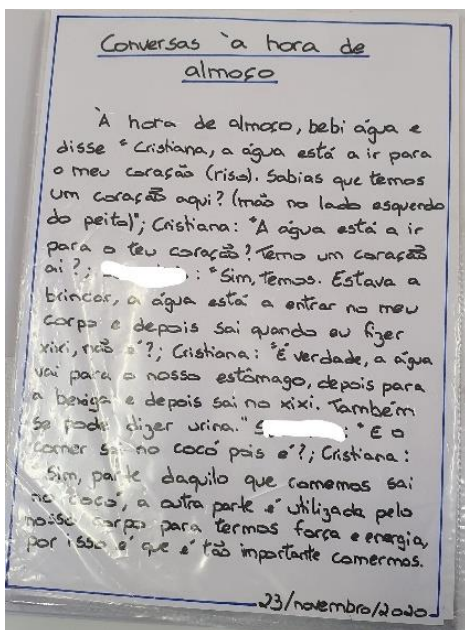 Conversas à hora de
almoço
À hora de almoço, bebi água e
disse "Cristiana, a água está a ir para
o meu coração (riso). Sabias que temos
um coração aqui? (mão no lado esquerdo
do peito)"; Cristiana: "A água está a ir
para o teu coração? Temo um coração
aí?; : "Sim, temos. Estava a
brincar, a água está a entrar no meu
corpo e depois sai quando eu fizer
xixi, não é?; Cristiana: "É verdade, a água
vai para o nosso estômago, depois para
a bexiga e depois sai no xixi. Também
se pode dizer urina." S : "E o
comer sai no cocó pois é?; Cristiana:
"Sim, parte daquilo que comemos sai
no cocó, a outra parte é utilizada pelo
nosso corpo para termos força e energia,
por isso é que é tão importante comermos.
23/novembro/2020